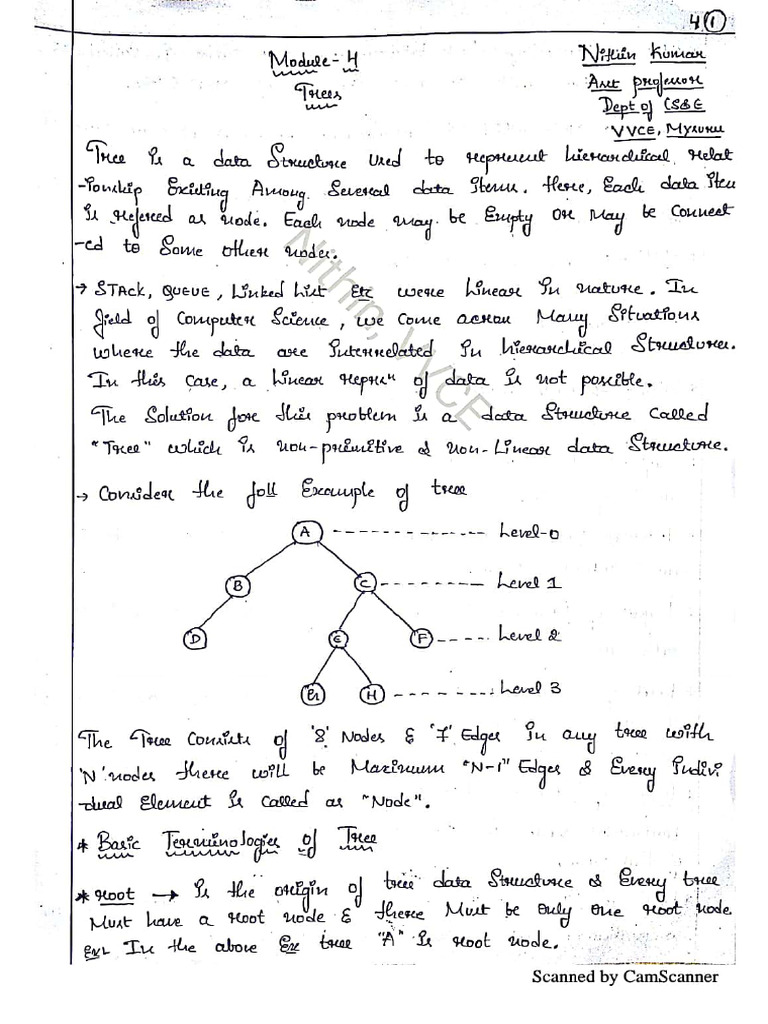 4 1
Module-4
Trees
Nithin Kumar
Asst professor
Dept of CS&E
VVCE, Mysuru
Tree is a data structure used to represent hierarchical relat
-ionship Existing Among Several data items. Here, Each data item
is refered as node. Each node may be Empty or May be Connect
-ed to Some other nodes.
→ STAck, QUEUE, Linked List Etc were Linear in nature. In
field of Computer Science, we Come across Many Situations
where the data are interrelated in hierarchical Structures.
In this Case, a linear reprsn of data is not possible.
The Solution for this problem is a data Structure Called
"Tree" which is non-primitive & non-Linear data Structure.
→ Consider the foll Example of tree
A Level-0
B C Level 1
D E F Level 2
G H Level 3
The Tree Consists of '8' Nodes & '7' Edges in any tree with
'N' nodes there will be Maximum "N-1" Edges & Every Indivi
-dual Element is Called as "Node".
* Basic Terminologies of Tree
* root → Is the origin of tree data Structure & Every tree
Must have a root node & there Must be Only One root node
Ex: In the above Ex tree "A" is root node.
Nithin, VVCE
Scanned by CamScanner